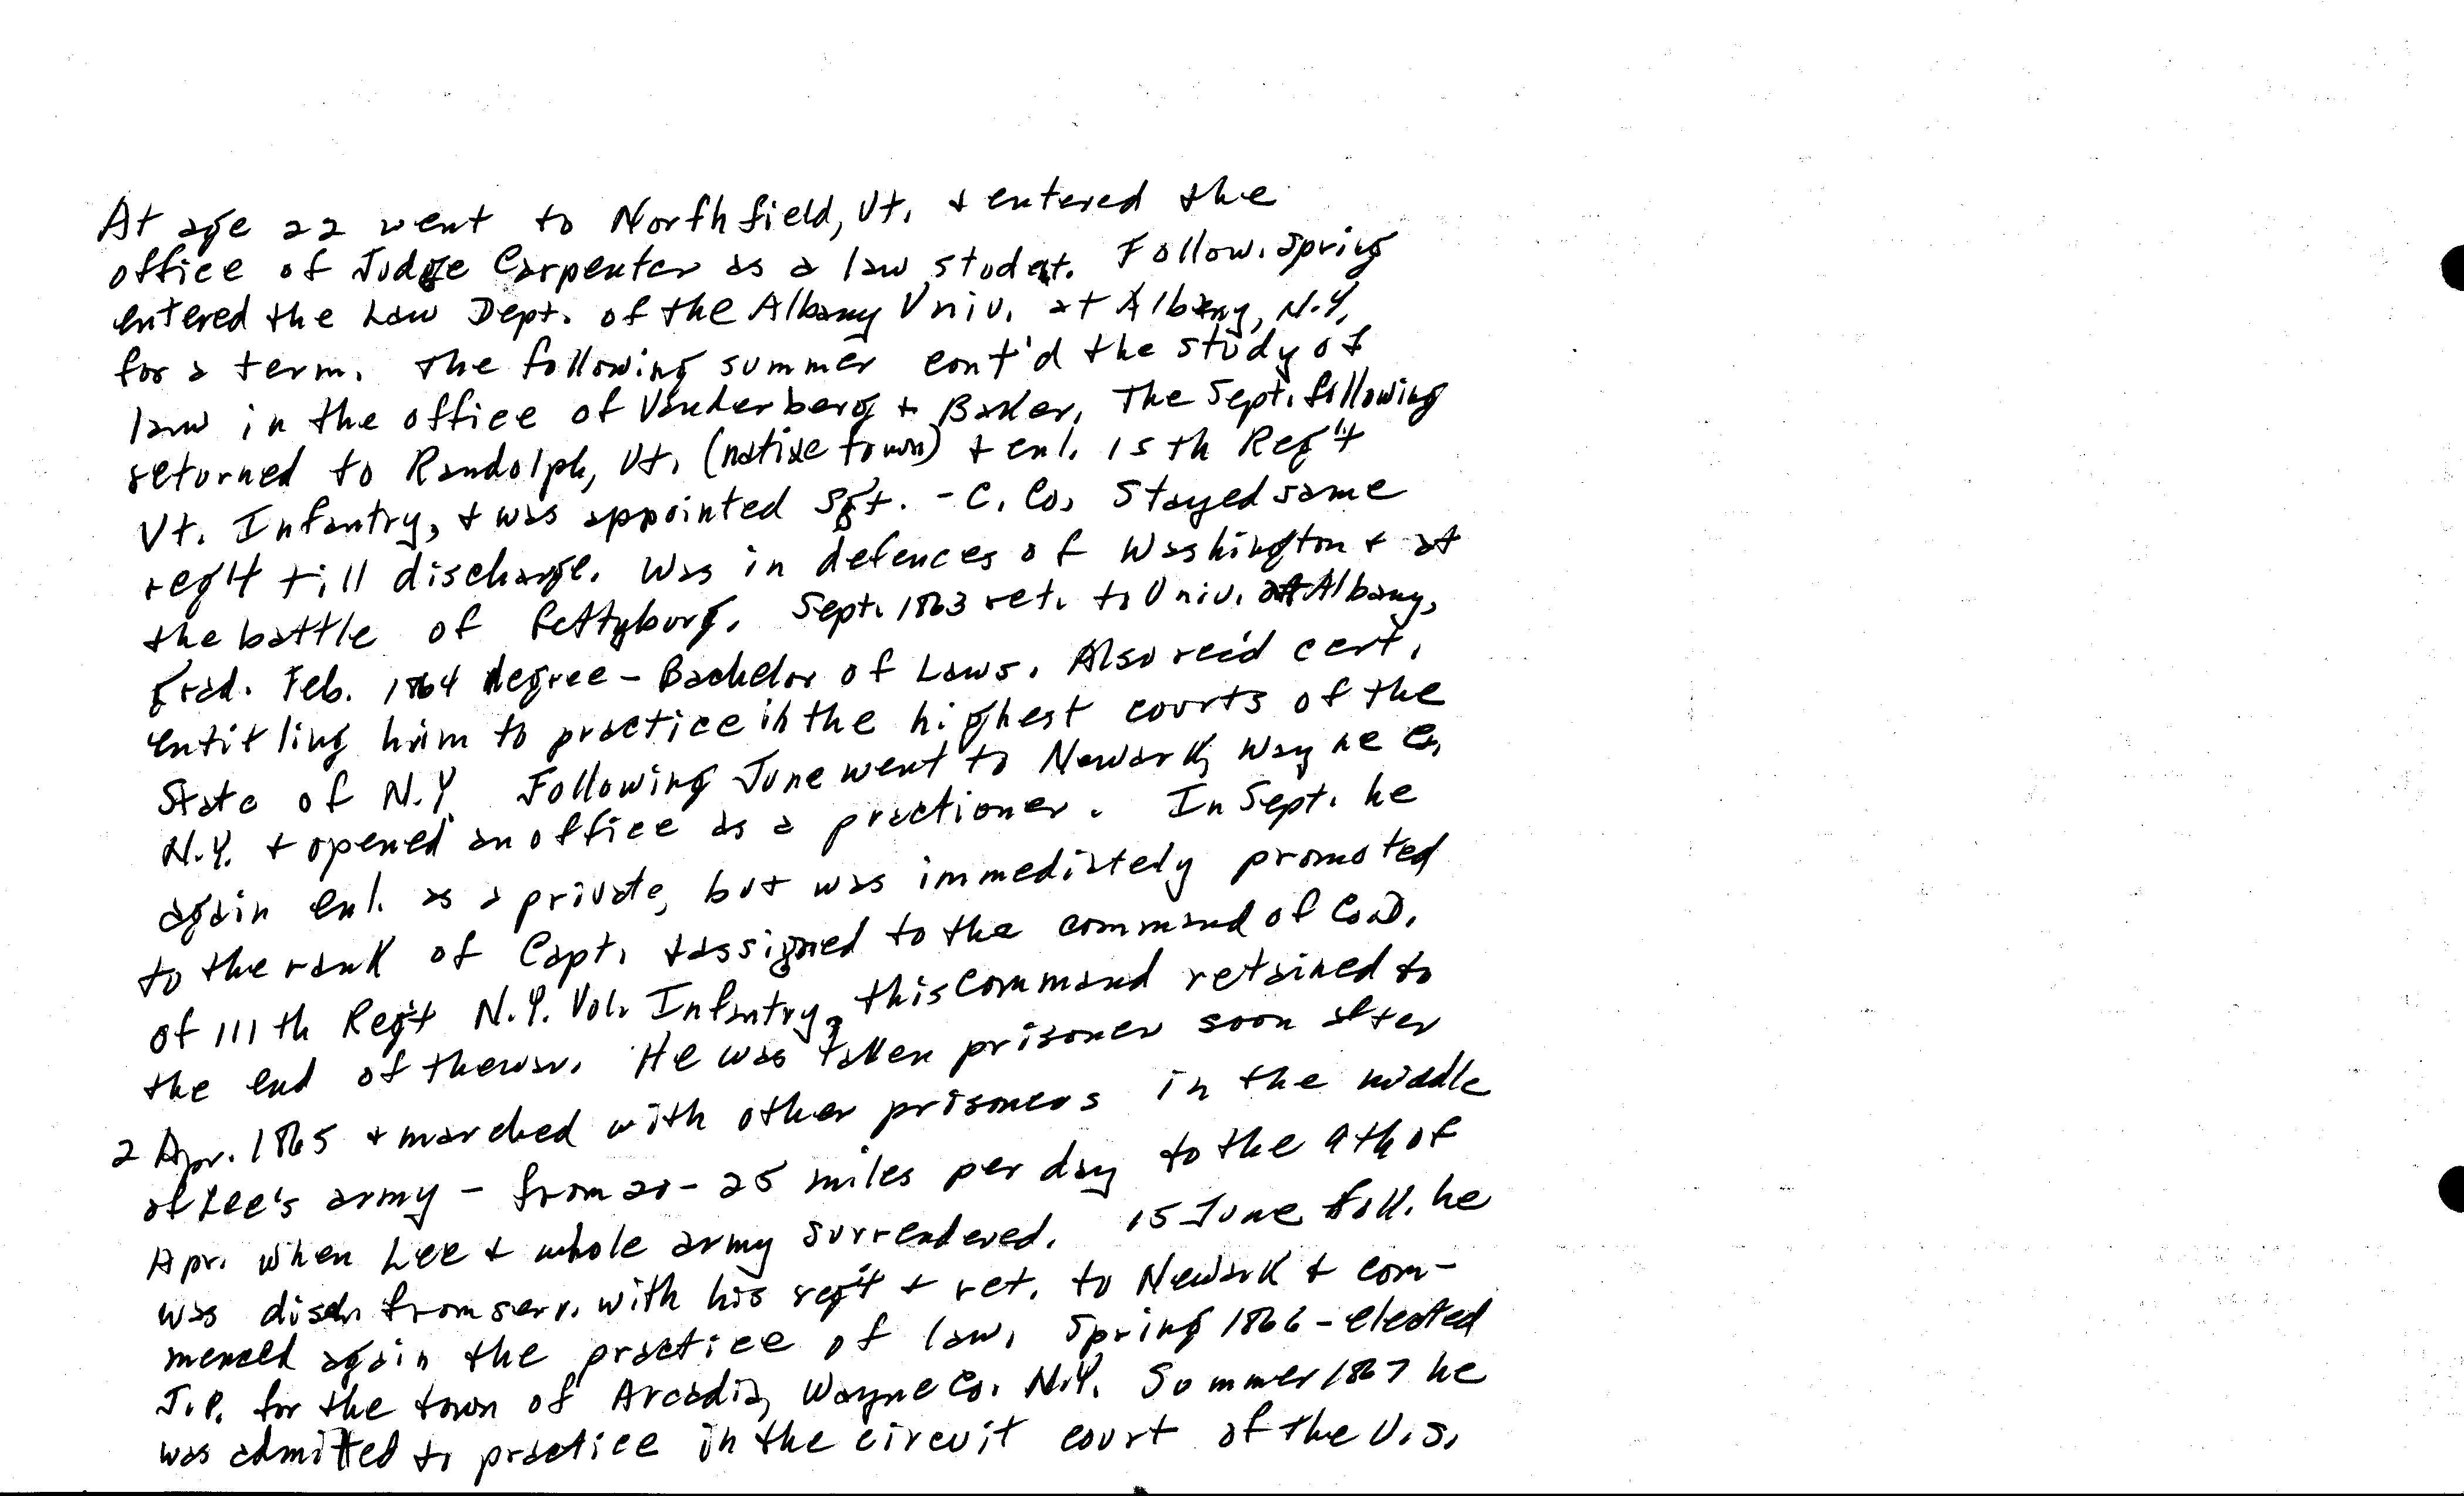 At age 22 went to Northfield, Vt. + entered the
office of Judge Carpenter as a law student. Follow. spring
entered the Law Dept. of the Albany Univ. at Albany, N.Y.
for a term. The following summer cont'd the study of
law in the office of Vanderberg + Baker. The Sept. following
returned to Randolph, Vt. (native town) + enl. 15th Reg't
Vt. Infantry, + was appointed Sgt. - C. Co. Stayed same
reg't till discharge. Was in defences of Washington + at
the battle of Gettyburg. Sept. 1863 ret. to Univ. at Albany,
grad. Feb. 1864 degree - Bachelor of Laws. Also rec'd cert.
entitling him to practice in the highest courts of the
State of N.Y. Following June went to Newark, Wayne Co,
N.Y. + opened an office as a practioner. In Sept. he
again enl. as a private, but was immediately promoted
to the rank of Capt. + assigned to the command of Co. D.
of 111th Reg't N.Y. Vol. Infantry, this command retained to
the end of the war. He was taken prisoner soon after
2 Apr. 1865 + marched with other prisoners in the middle
of Lee's army - from 20-25 miles per day to the 9th of
Apr. when Lee + whole army surrendered. 15 June foll. he
was disch from serv. with his reg't + ret. to Newark + com-
menced again the practice of law. Spring 1866 - elected
J.P. for the town of Arcadia, Wayne Co. N.Y. Summer 1867 he
was admitted to practice in the circuit court of the U.S.